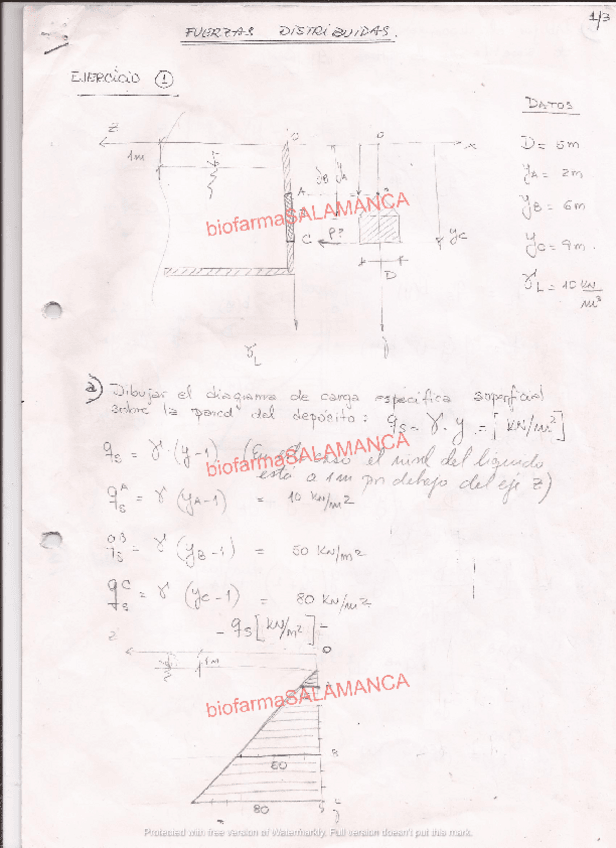 1/3
FUERZAS DISTRIBUIDAS.
EJERCICIO ①
DATOS
D = 5m
yA = 2m
yB = 6m
yC = 9m
γL = 10 KN/m³
Z
1m
O
O
x
yB yA
A
biofarmaSALAMANCA
C
P?
yC
D
γL
a) Dibujar el diagrama de carga específica superficial
sobre la pared del depósito: qs = γ · y = [KN/m²]
qs = γ · (y-1) (En este caso el nivel del líquido
está a 1m por debajo del eje Z)
biofarmaSALAMANCA
qsA = γ (yA-1) = 10 KN/m²
qsB = γ (yB-1) = 50 KN/m²
qsC = γ (yC-1) = 80 KN/m²
- qs [KN/m²] -
Z
O
1m
biofarmaSALAMANCA
80
Protected with free version of Watermarkly. Full version doesn't put this mark.